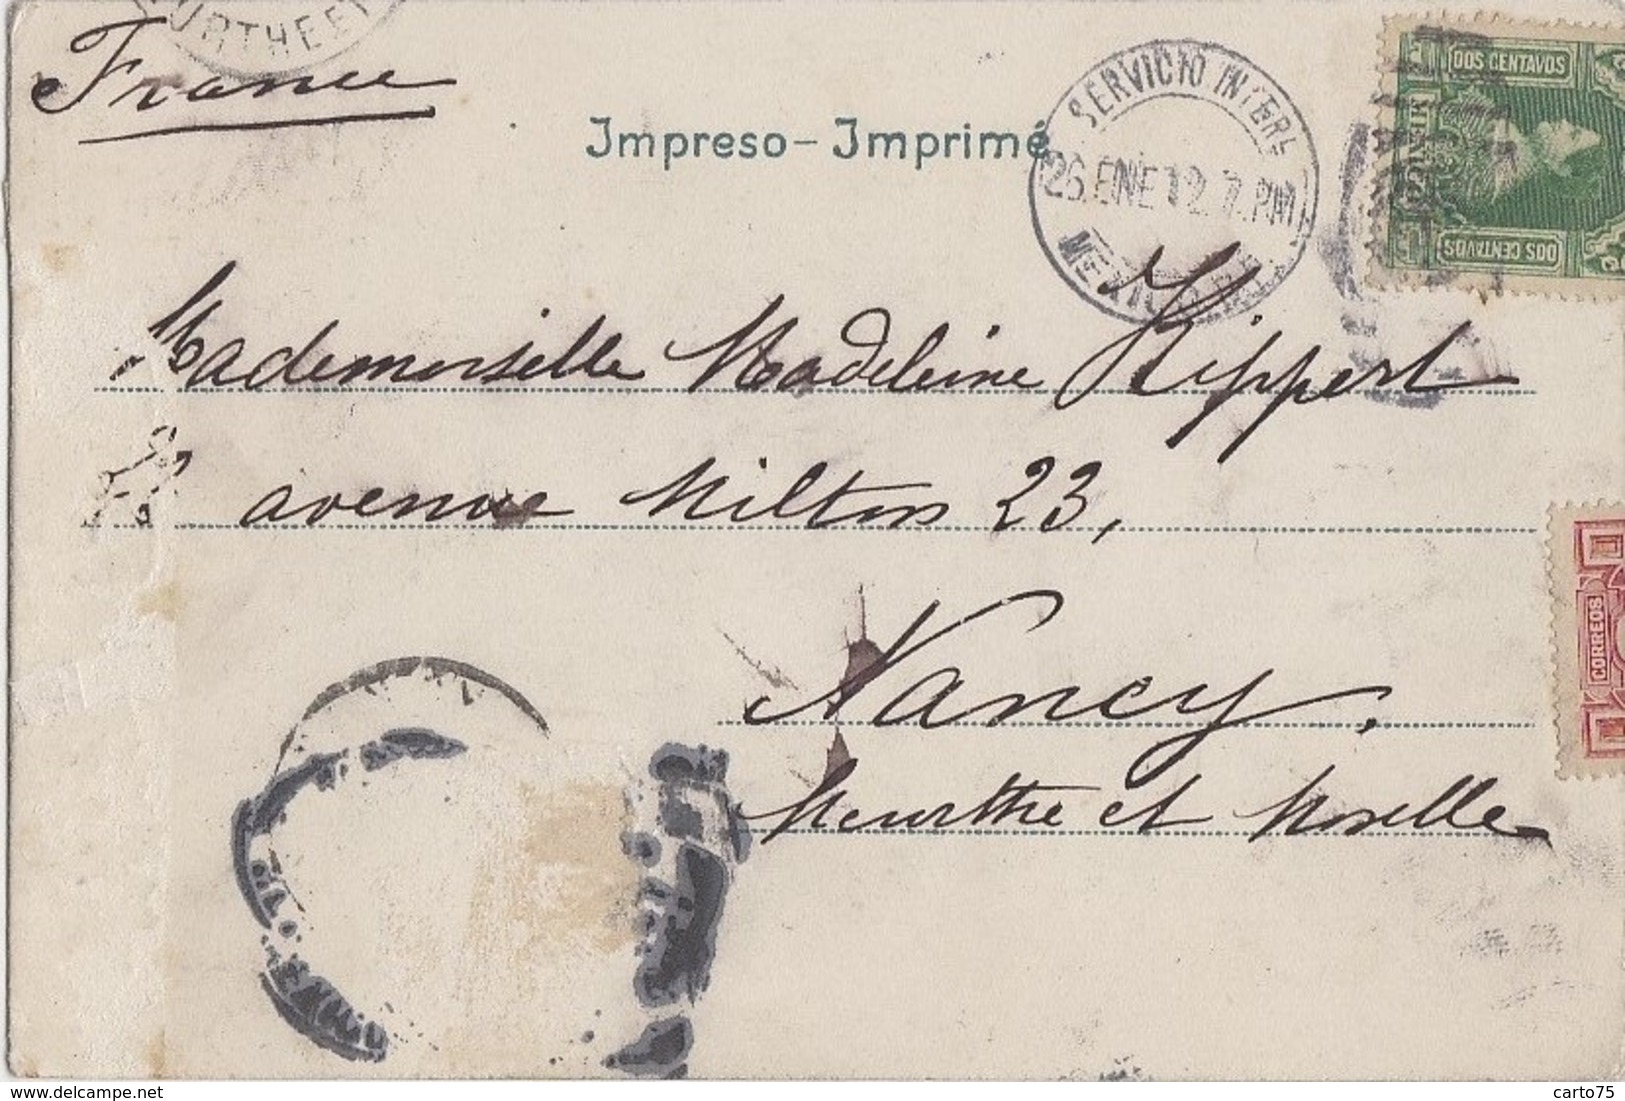 France
Impreso – Imprimé
SERVICIO INTER
26.ENE.12.7.PM
MEXICO
DOS CENTAVOS
DOS CENTAVOS
CORREOS
Mademoiselle Madeleine Kippert
avenue Milton 23,
Nancy.
Meurthe et Moselle
delcampe.net
carto75